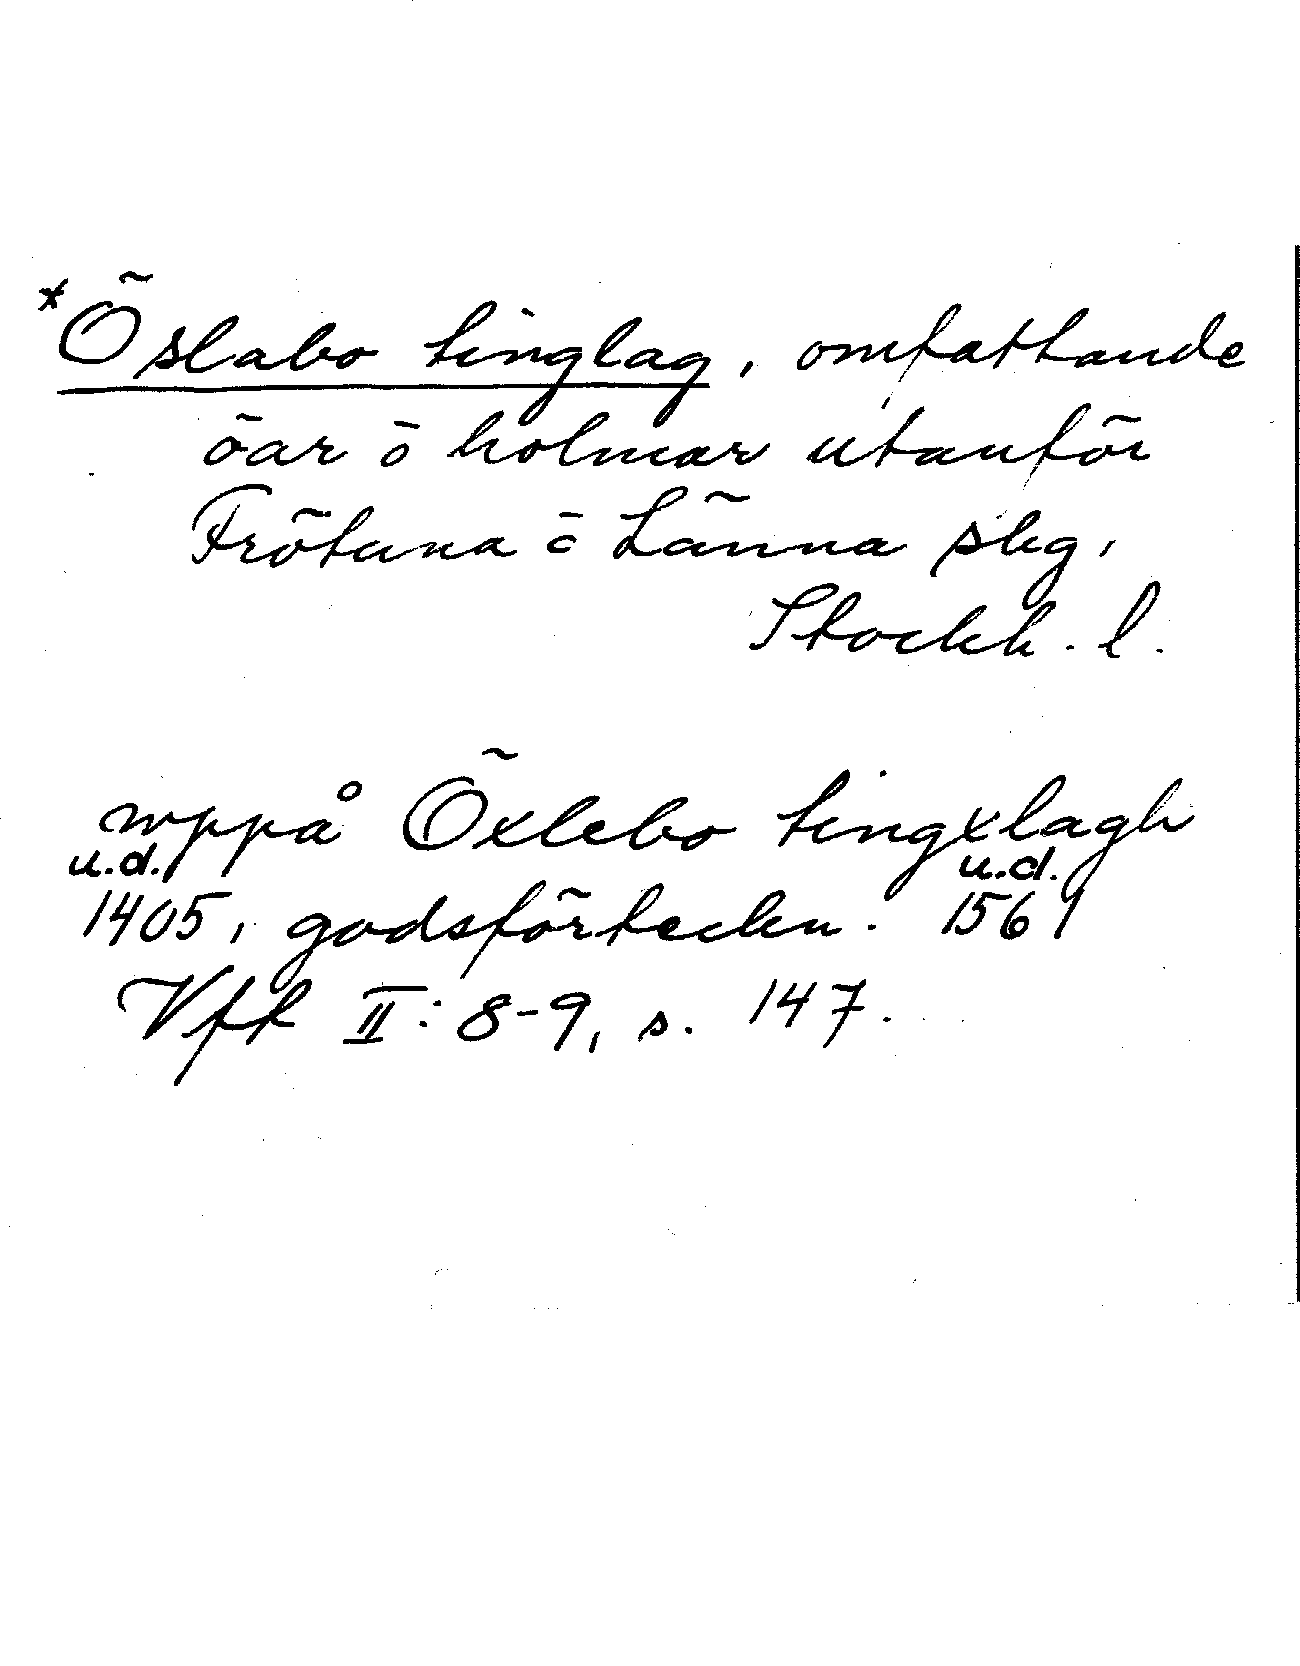 *Öslabo tinglag, omfattande
öar ō holmar utanför
Frötuna ō Länna skg,
Stockh. l.
wppå Öxlebo tingxlagh
u.d. u.d.
1405, godsförteckn. 1561
Vff II: 8-9, s. 147.